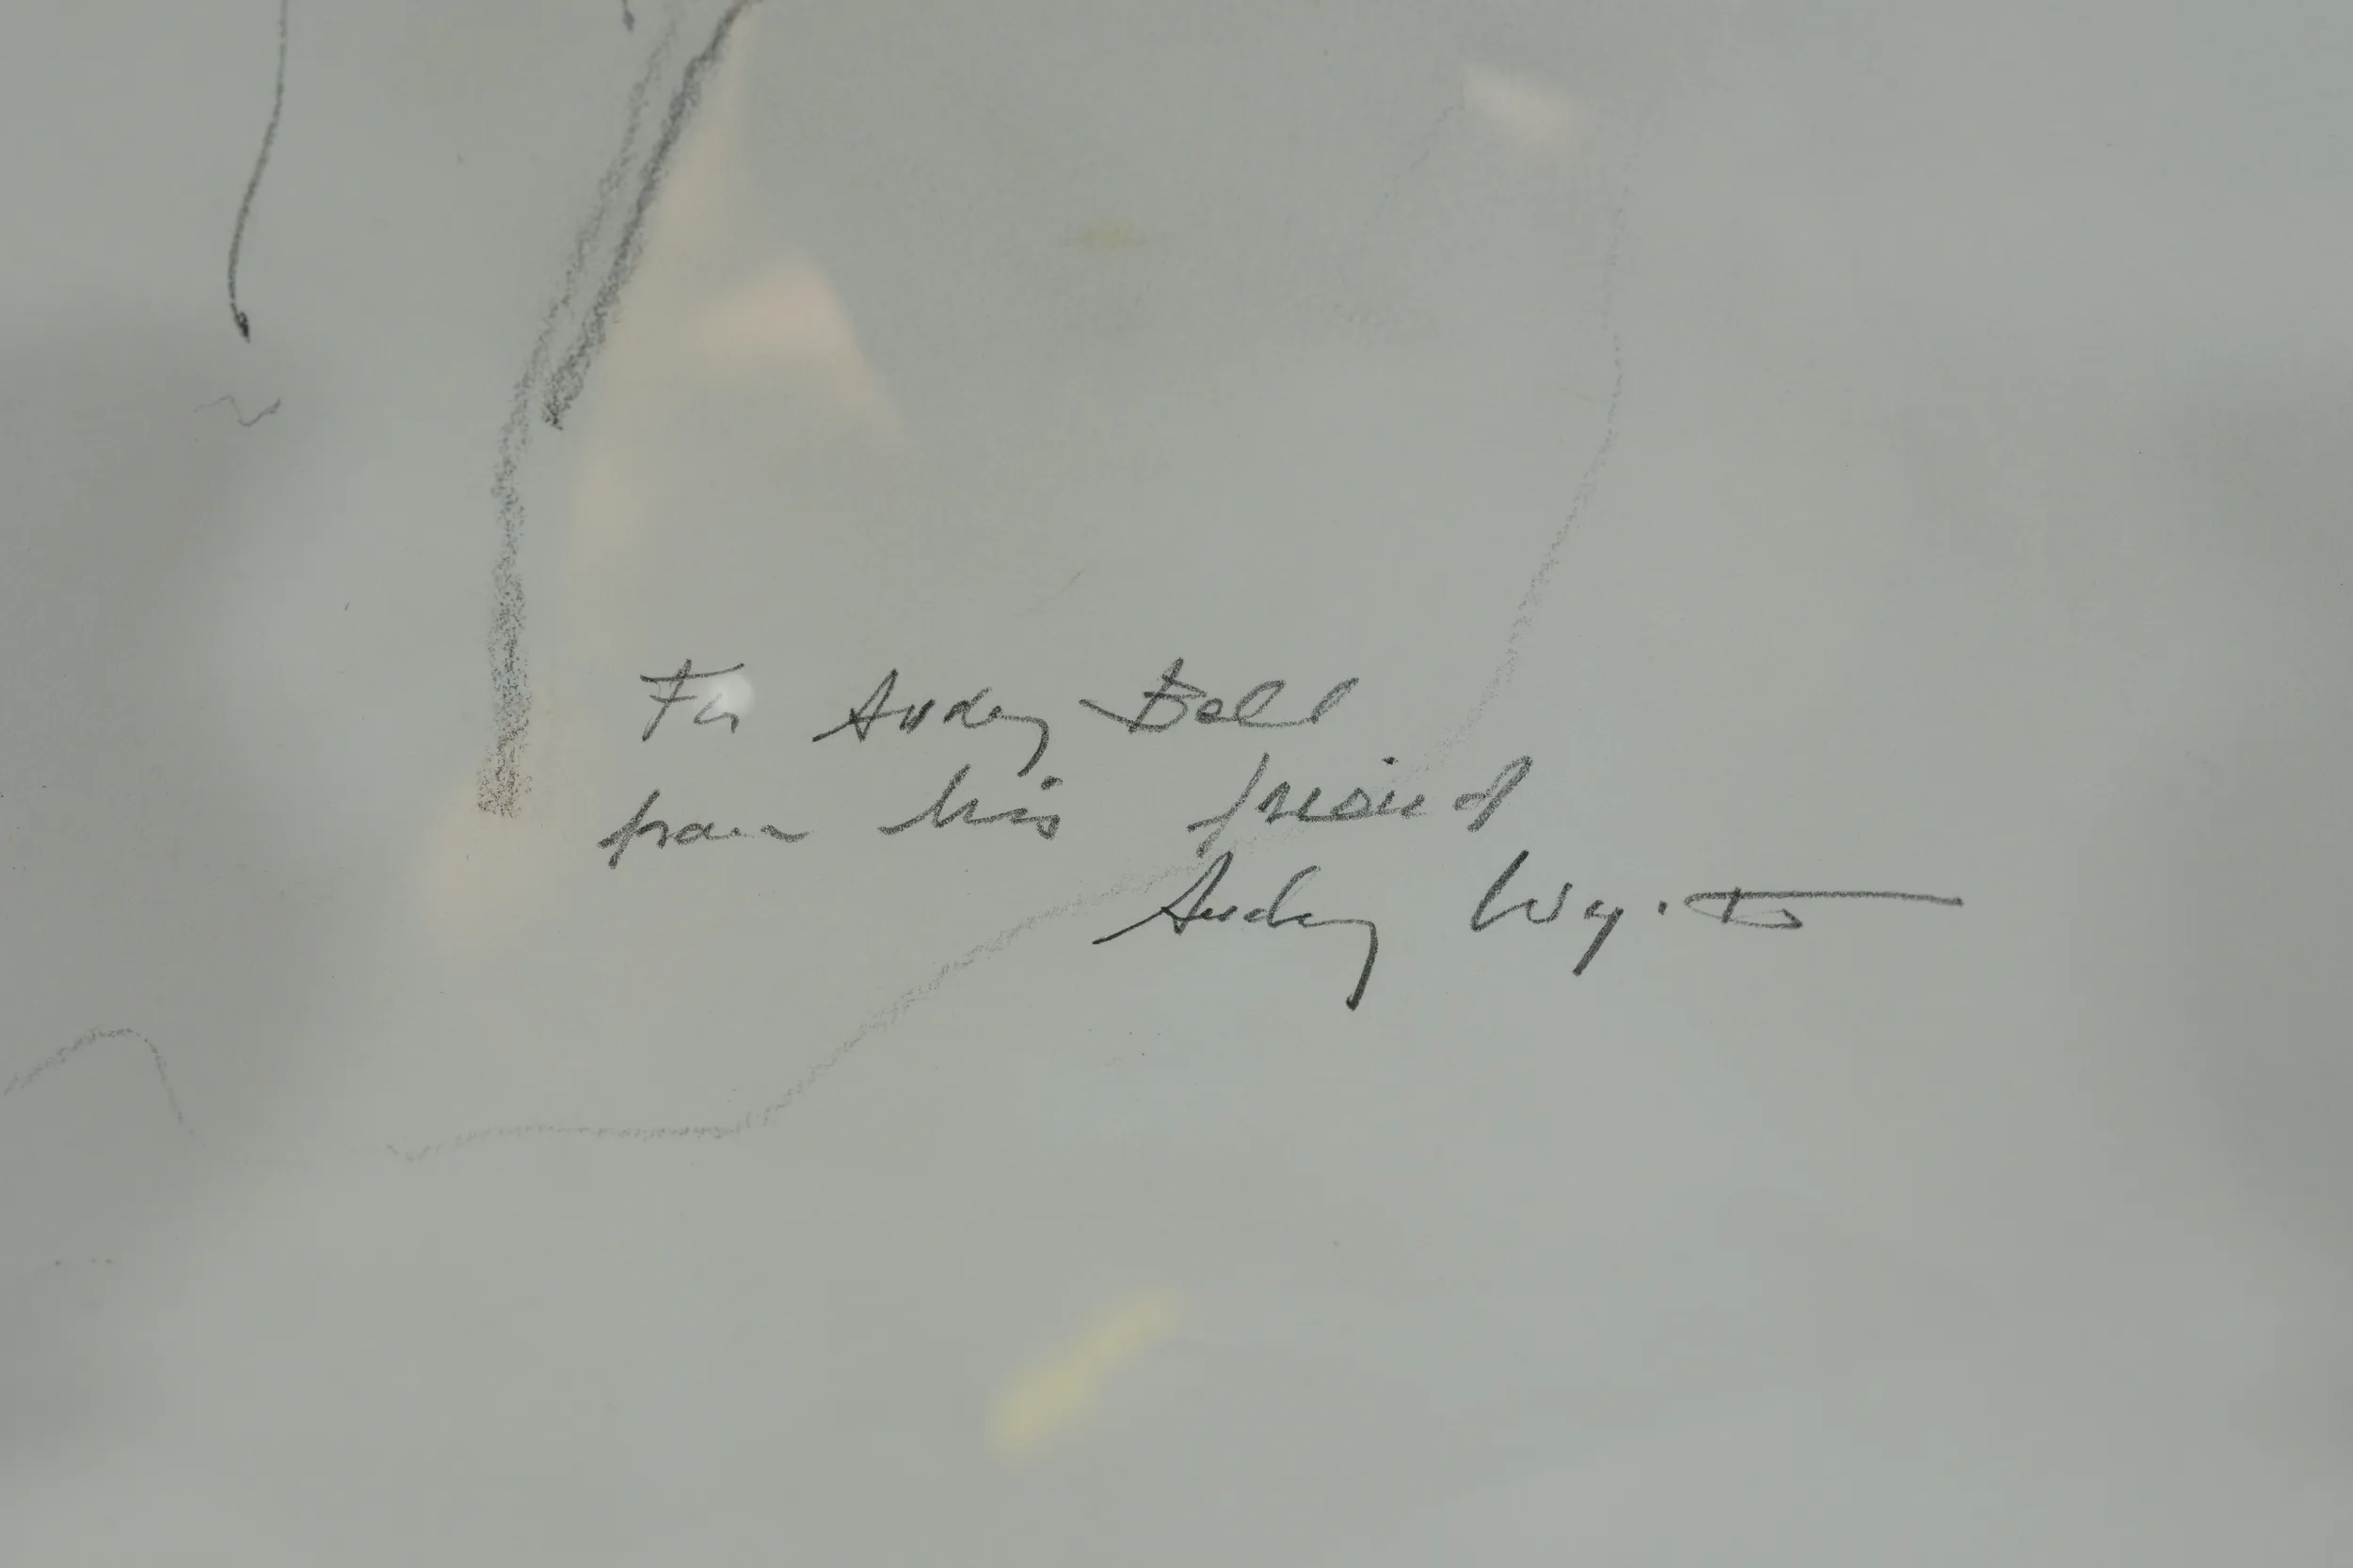 For Andy Bell
from his friend
Andy Wyeth